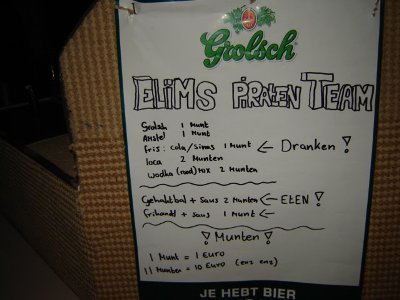 Grolsch
ELIMS PIRATEN TEAM
Grolsh 1 Munt
Amstel 1 Munt
fris: cola/sinas 1 Munt ← Dranken!
loca 2 Munten
Wodka (rood) Mix 2 Munten
Gehaktbal + saus 2 Munten ← ETEN!
frikandel + saus 1 Munt ←
! Munten!
1 Munt = 1 Euro
11 Munten = 10 Euro (enz enz)
JE HEBT BIER